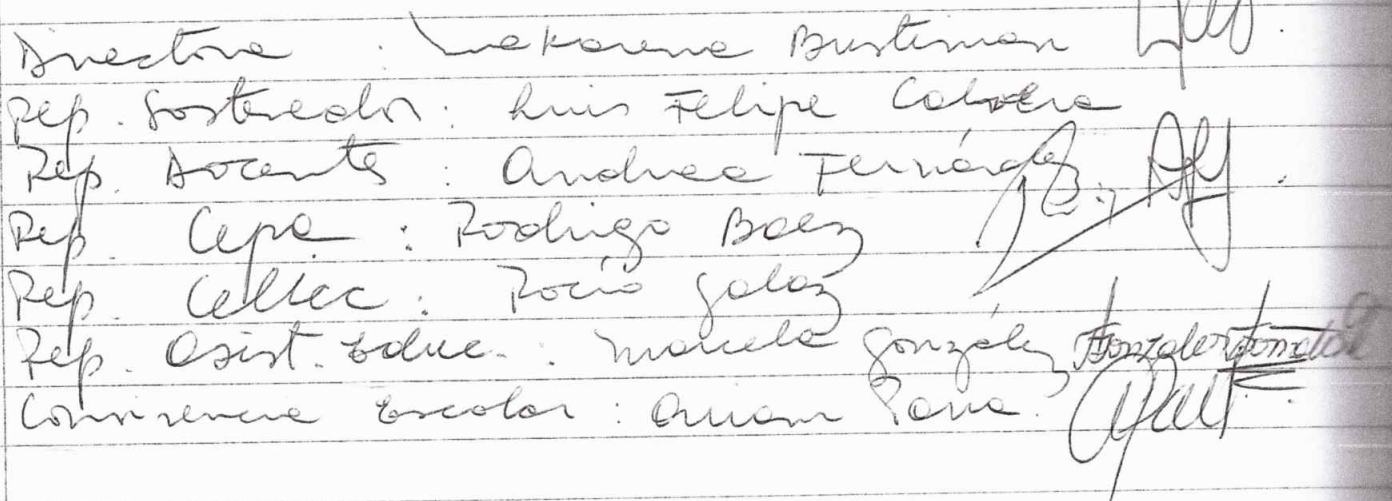 Directora : Makarena Bustiman
Rep. Sostenedor : Luis Felipe Cabrera
Rep. Docentes : Andrea Fernández
Rep Cepa : Rodrigo Baez
Rep. : Rocío Galaz
Rep. Asist. Educ. : Marcela González
Convivencia Escolar :